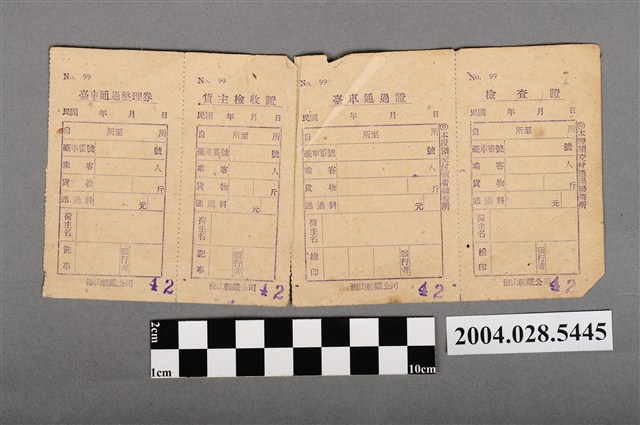 No. 99
臺車通過整理券
民國 年 月 日
自 所至 所
臺車番號 號
乘客 人
貨物 斤
通過料 元
荷主名
記事
發行者
42
No. 99
貨主檢收證
民國 年 月 日
自 所至 所
臺車番號 號
乘客 人
貨物 斤
通過料 元
荷主名
記事
發行者
42
No. 99
臺車通過證
民國 年 月 日
自 所至 所
臺車番號 號
乘客 人
貨物 斤
通過料 元
荷主名
檢印
發行者
42
No. 99
檢查證
民國 年 月 日
自 所至 所
臺車番號 號
乘客 人
貨物 斤
通過料 元
荷主名
檢印
發行者
42
2cm
1cm
10cm
2004.028.5445